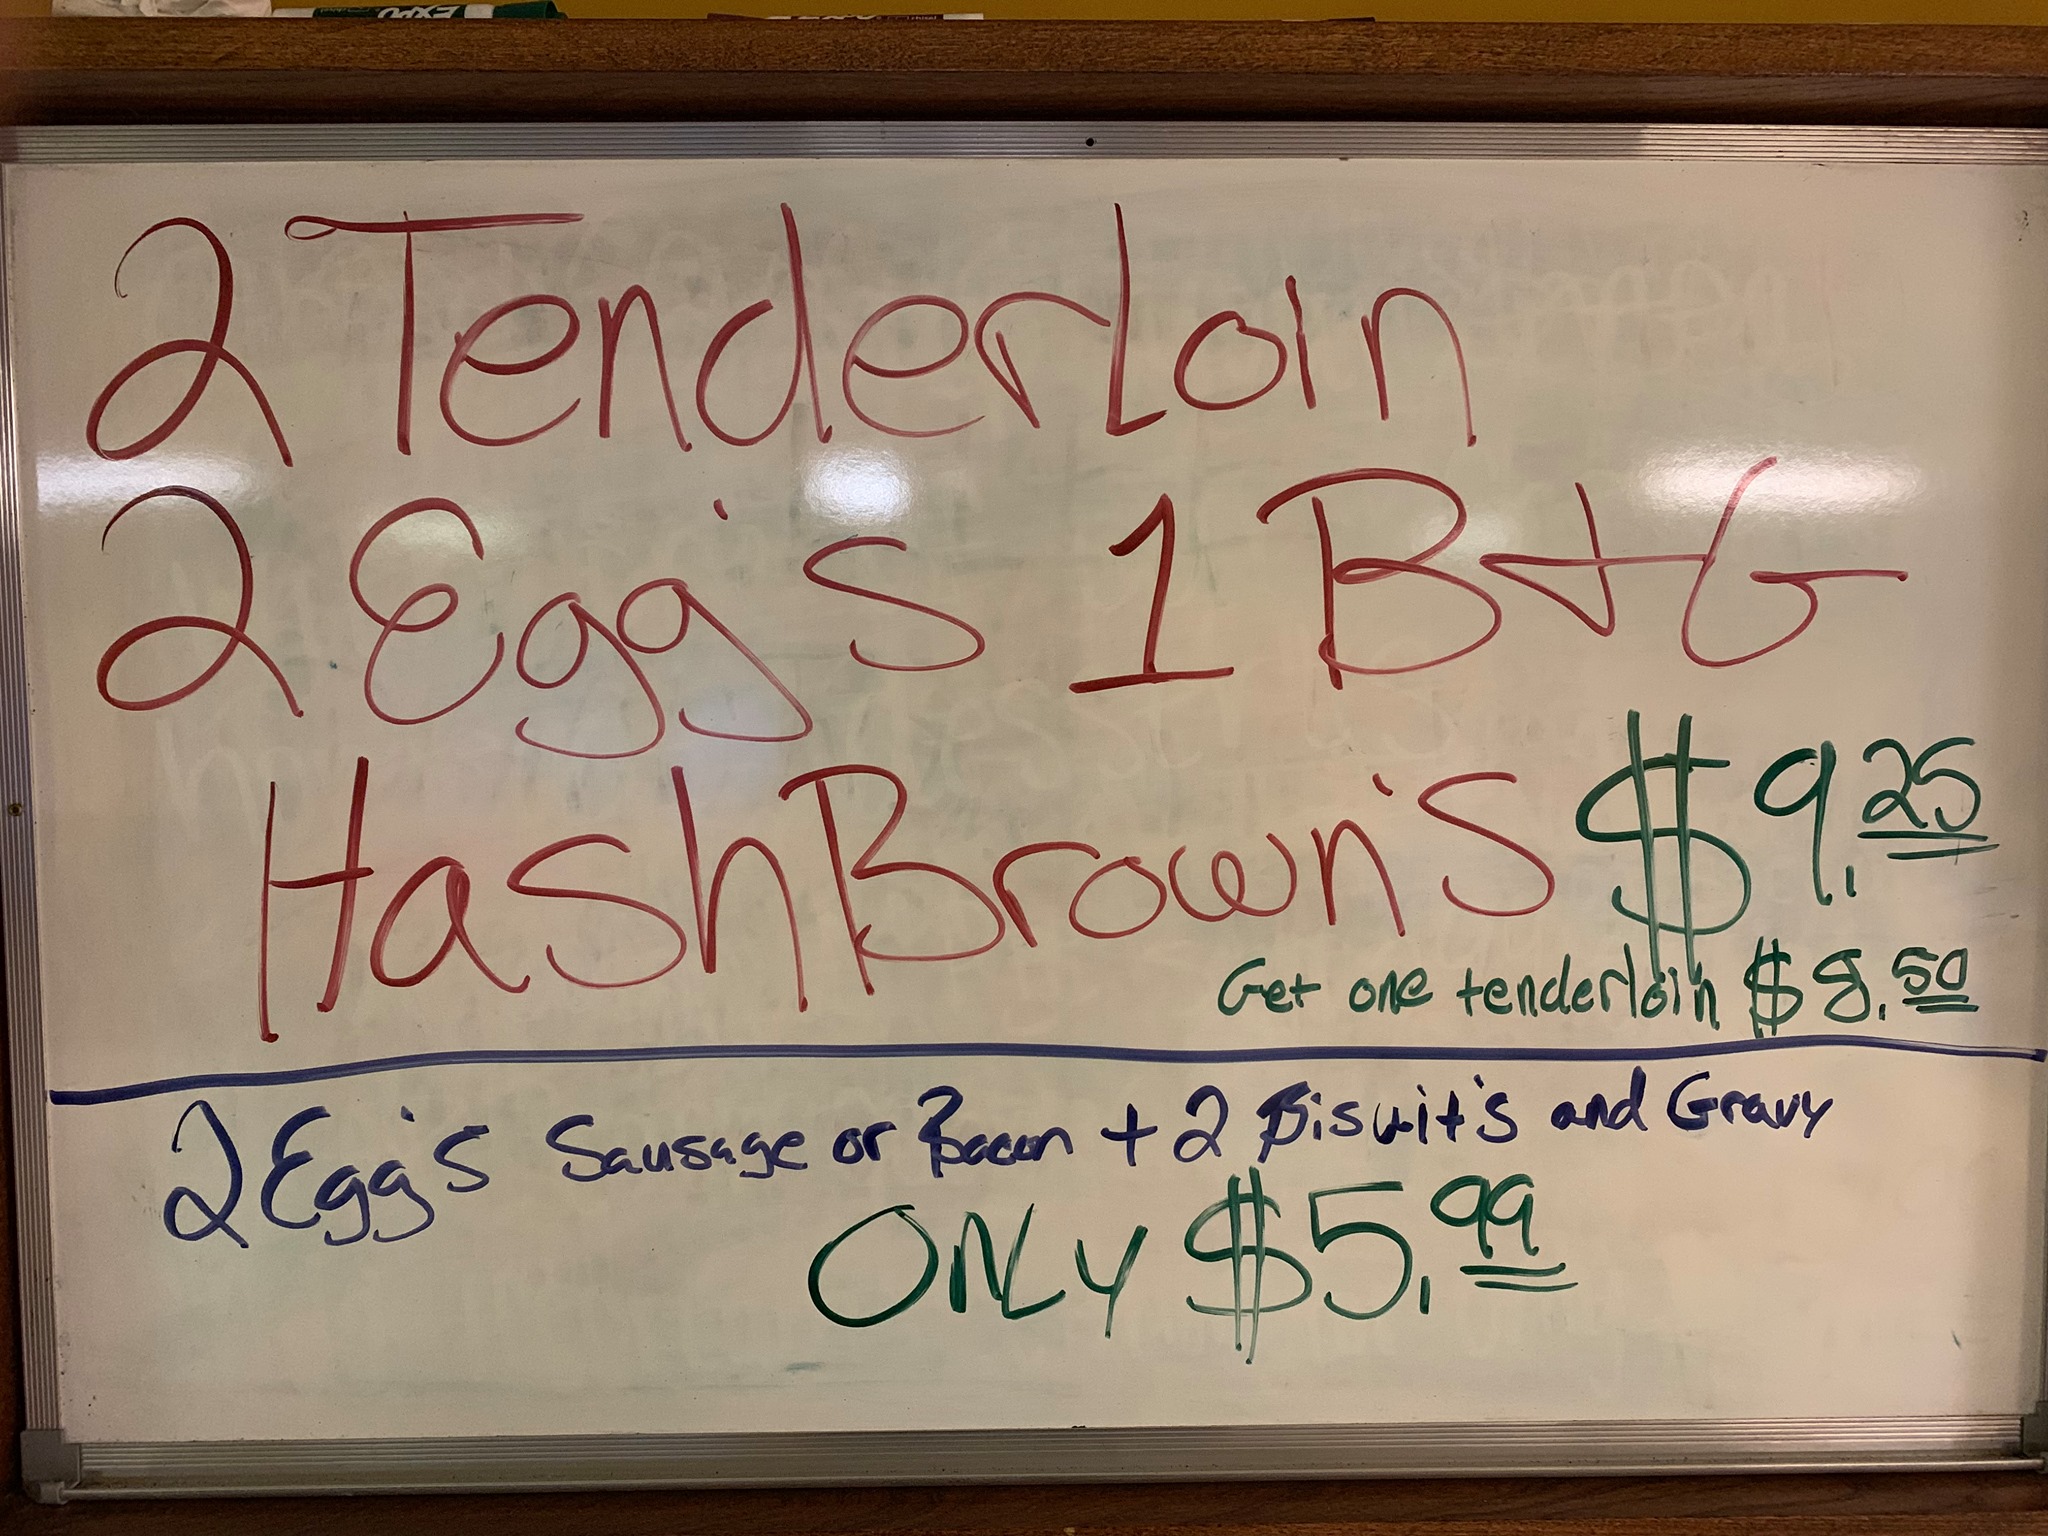 EXPO
2 TenderLoin
2 Egg's 1 B+G
HashBrown's $9.25
Get one tenderloin $8.50
2 Egg's Sausage or Bacon + 2 Biscuit's and Gravy
ONLy $5.99